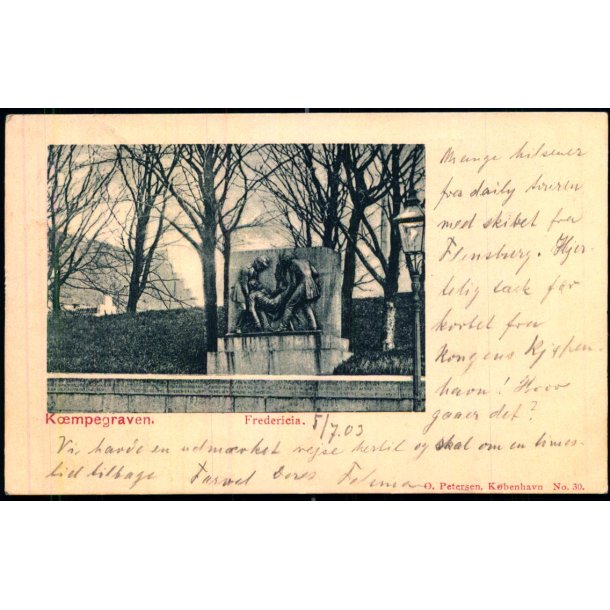 Mange hilsener
fra daily turen
med skibet fra
Flensburg. Hjer-
telig tack for
kortet fra
Kongens Kjøpen-
havn! Hvor
gaaer det?
Kœmpegraven.
Fredericia. 5/7.03
Vi havde en udmærket rejse hertil og skal om en times-
tid tilbage Farvel Deres
O. Petersen, København No. 30.